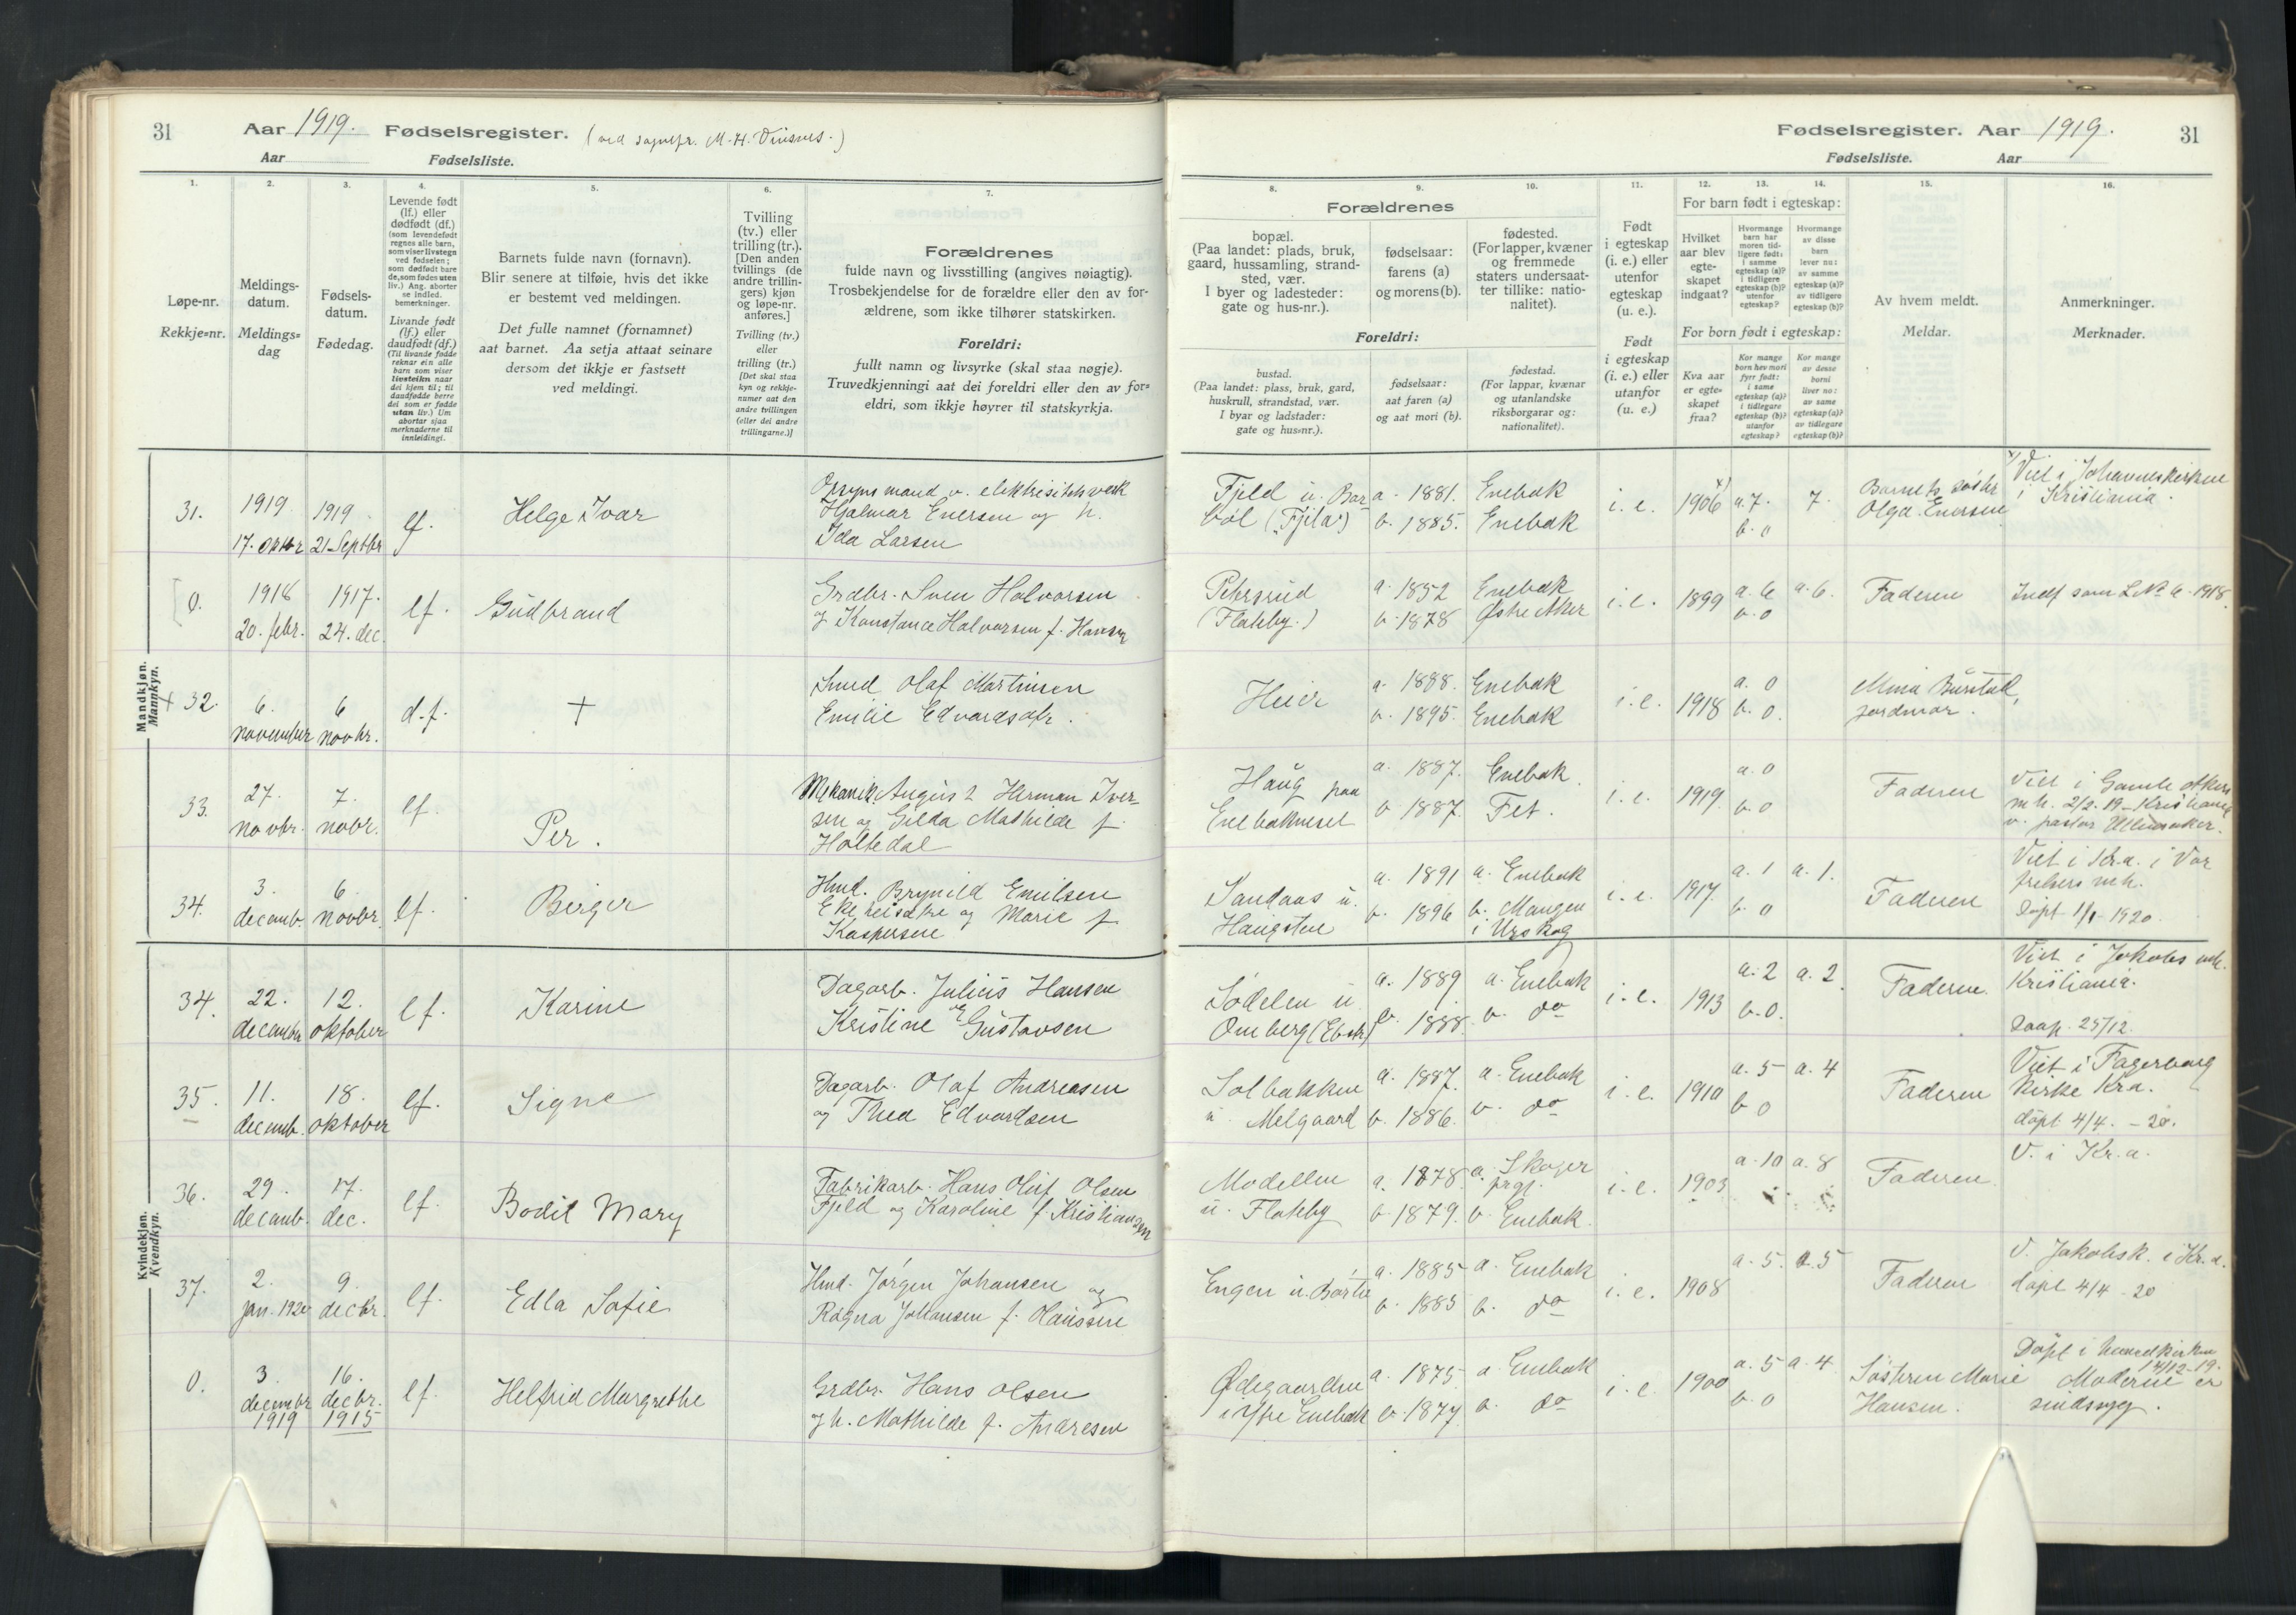 31
Aar 1919. Fødselsregister. (ved sognepr. M. H.
Aar
Fødselsliste.
1.
2.
3.
4.
5.
6.
7.
Løpe-nr.
Rekkje-nr.
Meldings-
datum.
Meldings-
dag
Fødsels-
datum.
Fødedag.
Levende født
(lf.) eller
dødfødt (df.)
(som levendefødt
regnes alle barn,
som viser livstegn
ved fødselen;
som dødfødt bare
de, som fødes uten
liv.) Ang. aborter
se indled.
bemerkninger.
Livande født
(lf.) eller
daudfødt (df.)
(Til livande fødde
reknar ein alle
barn som viser
livsteikn naar
dei kjem til; til
daudfødde berre
dei som er fødde
utan liv.) Um
abortar sjaa
merknaderne til
innleidingi.
Barnets fulde navn (fornavn).
Blir senere at tilføie, hvis det ikke
er bestemt ved meldingen.
Det fulle namnet (fornamnet)
aat barnet. Aa setja attaat seinare
dersom det ikkje er fastsett
ved meldingi.
Tvilling
(tv.) eller
trilling (tr.).
[Den anden
tvillings (de
andre trillin-
gers) kjøn
og løpe-nr.
anføres.]
Tvilling (tv.)
eller
trilling (tr.)
[Det skal staa
kyn og rekkje-
numer aat den
andre tvillingen
(eller dei andre
trillingarne.)]
Forældrenes
fulde navn og livsstilling (angives nøiagtig).
Trosbekjendelse for de forældre eller den av for-
ældrene, som ikke tilhører statskirken.
Foreldri:
fullt namn og livsyrke (skal staa nøgje).
Truvedkjenningi aat dei foreldri eller den av for-
eldri, som ikkje høyrer til statskyrkja.
Mandkjøn.
Mannkyn.
31.
1919
17. oktbr
1919
21 Septbr
lf.
Helge Ivar
Opsynsmand v. elektrisitetsverk
Hjalmar Enersen og h.
Ida Larsen
0.
1918
20. febr.
1917.
24. dec.
lf.
Gudbrand
Grdbr. Sven Halvorsen
og Konstance Halvorsen f. Hansen
+ 32.
6.
november
6
novbr.
d.f.
+
Smed Olaf Martinsen
Emilie Edvardsdtr.
33.
27.
novbr.
7.
nobr.
lf.
Per.
Mekanik. August Herman Iver-
sen og Gilda Mathilde f.
Holtedal
34.
3.
decemb.
6
novbr.
lf.
Birger
Hmd. Brynild Emilsen
og Marie f.
Kaspersen
Kvindekjøn.
Kvendkyn.
34.
22.
decembr
12.
oktober
lf.
Karine
Dagarb. Julius Hansen
Kristine og E Gustavsen
35.
11.
decemb.
18.
oktober
lf.
Signe
Dagarb. Olaf Andreasen
og Thea Edvardsen
36.
29.
decemb.
17.
dec.
lf.
Bodil Mary
Fabrikarb. Hans Oluf Olsen
Fjeld og Karoline f. Kristiansen
37.
2.
jan. 1920
9.
decbr.
lf.
Edla Sofie
Hmd. Jørgen Johansen og
Ragna Johansen f. Hanssen
0.
3.
decembr
1919
16.
decbr.
1915
lf.
Helfrid Margrethe
Grdbr. Hans Olsen
og h. Mathilde f. Andresen
Fødselsregister. Aar 1919.
31
Fødselsliste.
Aar
8.
9.
10.
11.
12.
13.
14.
15.
16.
Forældrenes
bopæl.
(Paa landet: plads, bruk,
gaard, hussamling, strand-
sted, vær.
I byer og ladesteder:
gate og hus-nr.).
fødselsaar:
farens (a)
og morens (b).
fødested.
(For lapper, kvæner
og fremmede
staters undersaat-
ter tillike: natio-
nalitet).
Foreldri:
bustad.
(Paa landet: plass, bruk, gard,
huskrull, strandstad, vær.
I byar og ladstader:
gate og hus-nr.).
fødselsaar:
aat faren (a)
og aat mori (b).
fødestad.
(For lappar, kvænar
og utanlandske
riksborgarar og:
nationalitet).
Født
i egteskap
(i. e.) eller
utenfor
egteskap
(u. e.).
Født
i egteskap
(i. e.) eller
utanfor
(u. e.)
For barn født i egteskap:
Hvilket
aar blev
egte-
skapet
indgaat?
Hvormange
barn har
moren tid-
ligere født:
i samme
egteskap (a)?
i tidligere
egteskap (b)?
utenfor
egteskap?
Hvormange
av disse
barn
lever nu:
av samme
egteskap (a)?
av tidligere
egteskap (b)?
For born født i egteskap:
Kva aar
er egte-
skapet
fraa?
Kor mange
born hev mori
fyrr født:
i same
egteskap (a)?
i tidlegare
egteskap (b)?
utanfor
egteskap?
Kor mange
av desse
borni
liver no:
av same
egteskap (a)?
av tidlegare
egteskap (b)?
Av hvem meldt.
Meldar.
Anmerkninger.
Merknader.
Fjeld u. Bar
bøl ("Fjæla")
a. 1881.
b. 1885.
Enebak
Enebak
i. e.
1906 x)
a. 7.
b. 0
7.
Barnets søster
Olga Enersen
x) Viet i Johanneskirken
i Kristiania.
Petersrud
(Flateby.)
a. 1852
b. 1878
Enebak
Østre Aker
i. e.
1899
a. 6
b. 0
a. 6.
Faderen
Indf som L.№ 6. 1918.
Heier
a. 1888.
b. 1895.
Enebak
Enebak
i. e.
1918
a. 0
b. 0.
Mina Bustad,
jordmor.
Haug paa
Enebaknesset
a. 1887.
b 1887.
Enebak.
Fet.
i. e.
1919
a. 0
b. 0
Faderen
Viet i Gamle Akers
m.k. 2/2. 19 - Kristiania
v. pastor Ullensaker.
Sandaas u.
Haugsten
a. 1891
b. 1896
a. Enebak
b. Mangen
i Urskog
i. e.
1917.
a. 1
b. 0
a. 1.
Faderen
Viet i Kr.a. i Vor
frelsers mk.
Døpt 1/1 - 1920.
Sødelen u.
Omberg (Ebak)
a. 1889
b. 1888.
a. Enebak
b. do
i. e.
1913
a. 2
b. 0.
a. 2
Faderen.
Viet i Jakobs mk.
Kristiania.
Daap. 25/12.
Solbakken
u. Melgaard
a. 1887.
b. 1886.
a. Enebak
b. do
i. e.
1910
a. 5
b 0
a. 4
Faderen
Viet i Fagerborg
Kirke Kra.
døpt 4/4. - 20.
Modellen
u. Flateby
a. 1878.
b. 1879.
a. Skoger
prgj.
b. Enebak.
i. e.
1903
a. 10
a. 8
Faderen.
V. i Kr. a.
Engen u. Børte
a. 1885
b. 1885
a. Enebak
b. do
i. e.
1908
a. 5.
a. 5
Faderen
V. Jakobsk. i Kr. a.
døpt 4/4 - 20
Ødegaarden
i Ytre Enebak
a. 1875
b. 1874.
a. Enebak
b. do
i. e.
1900
a. 5
b. 0
a. 4
Søsteren Marie
Hansen.
Døpt i hovedkirken
14/12-19.
Moderen er
sindssyg.